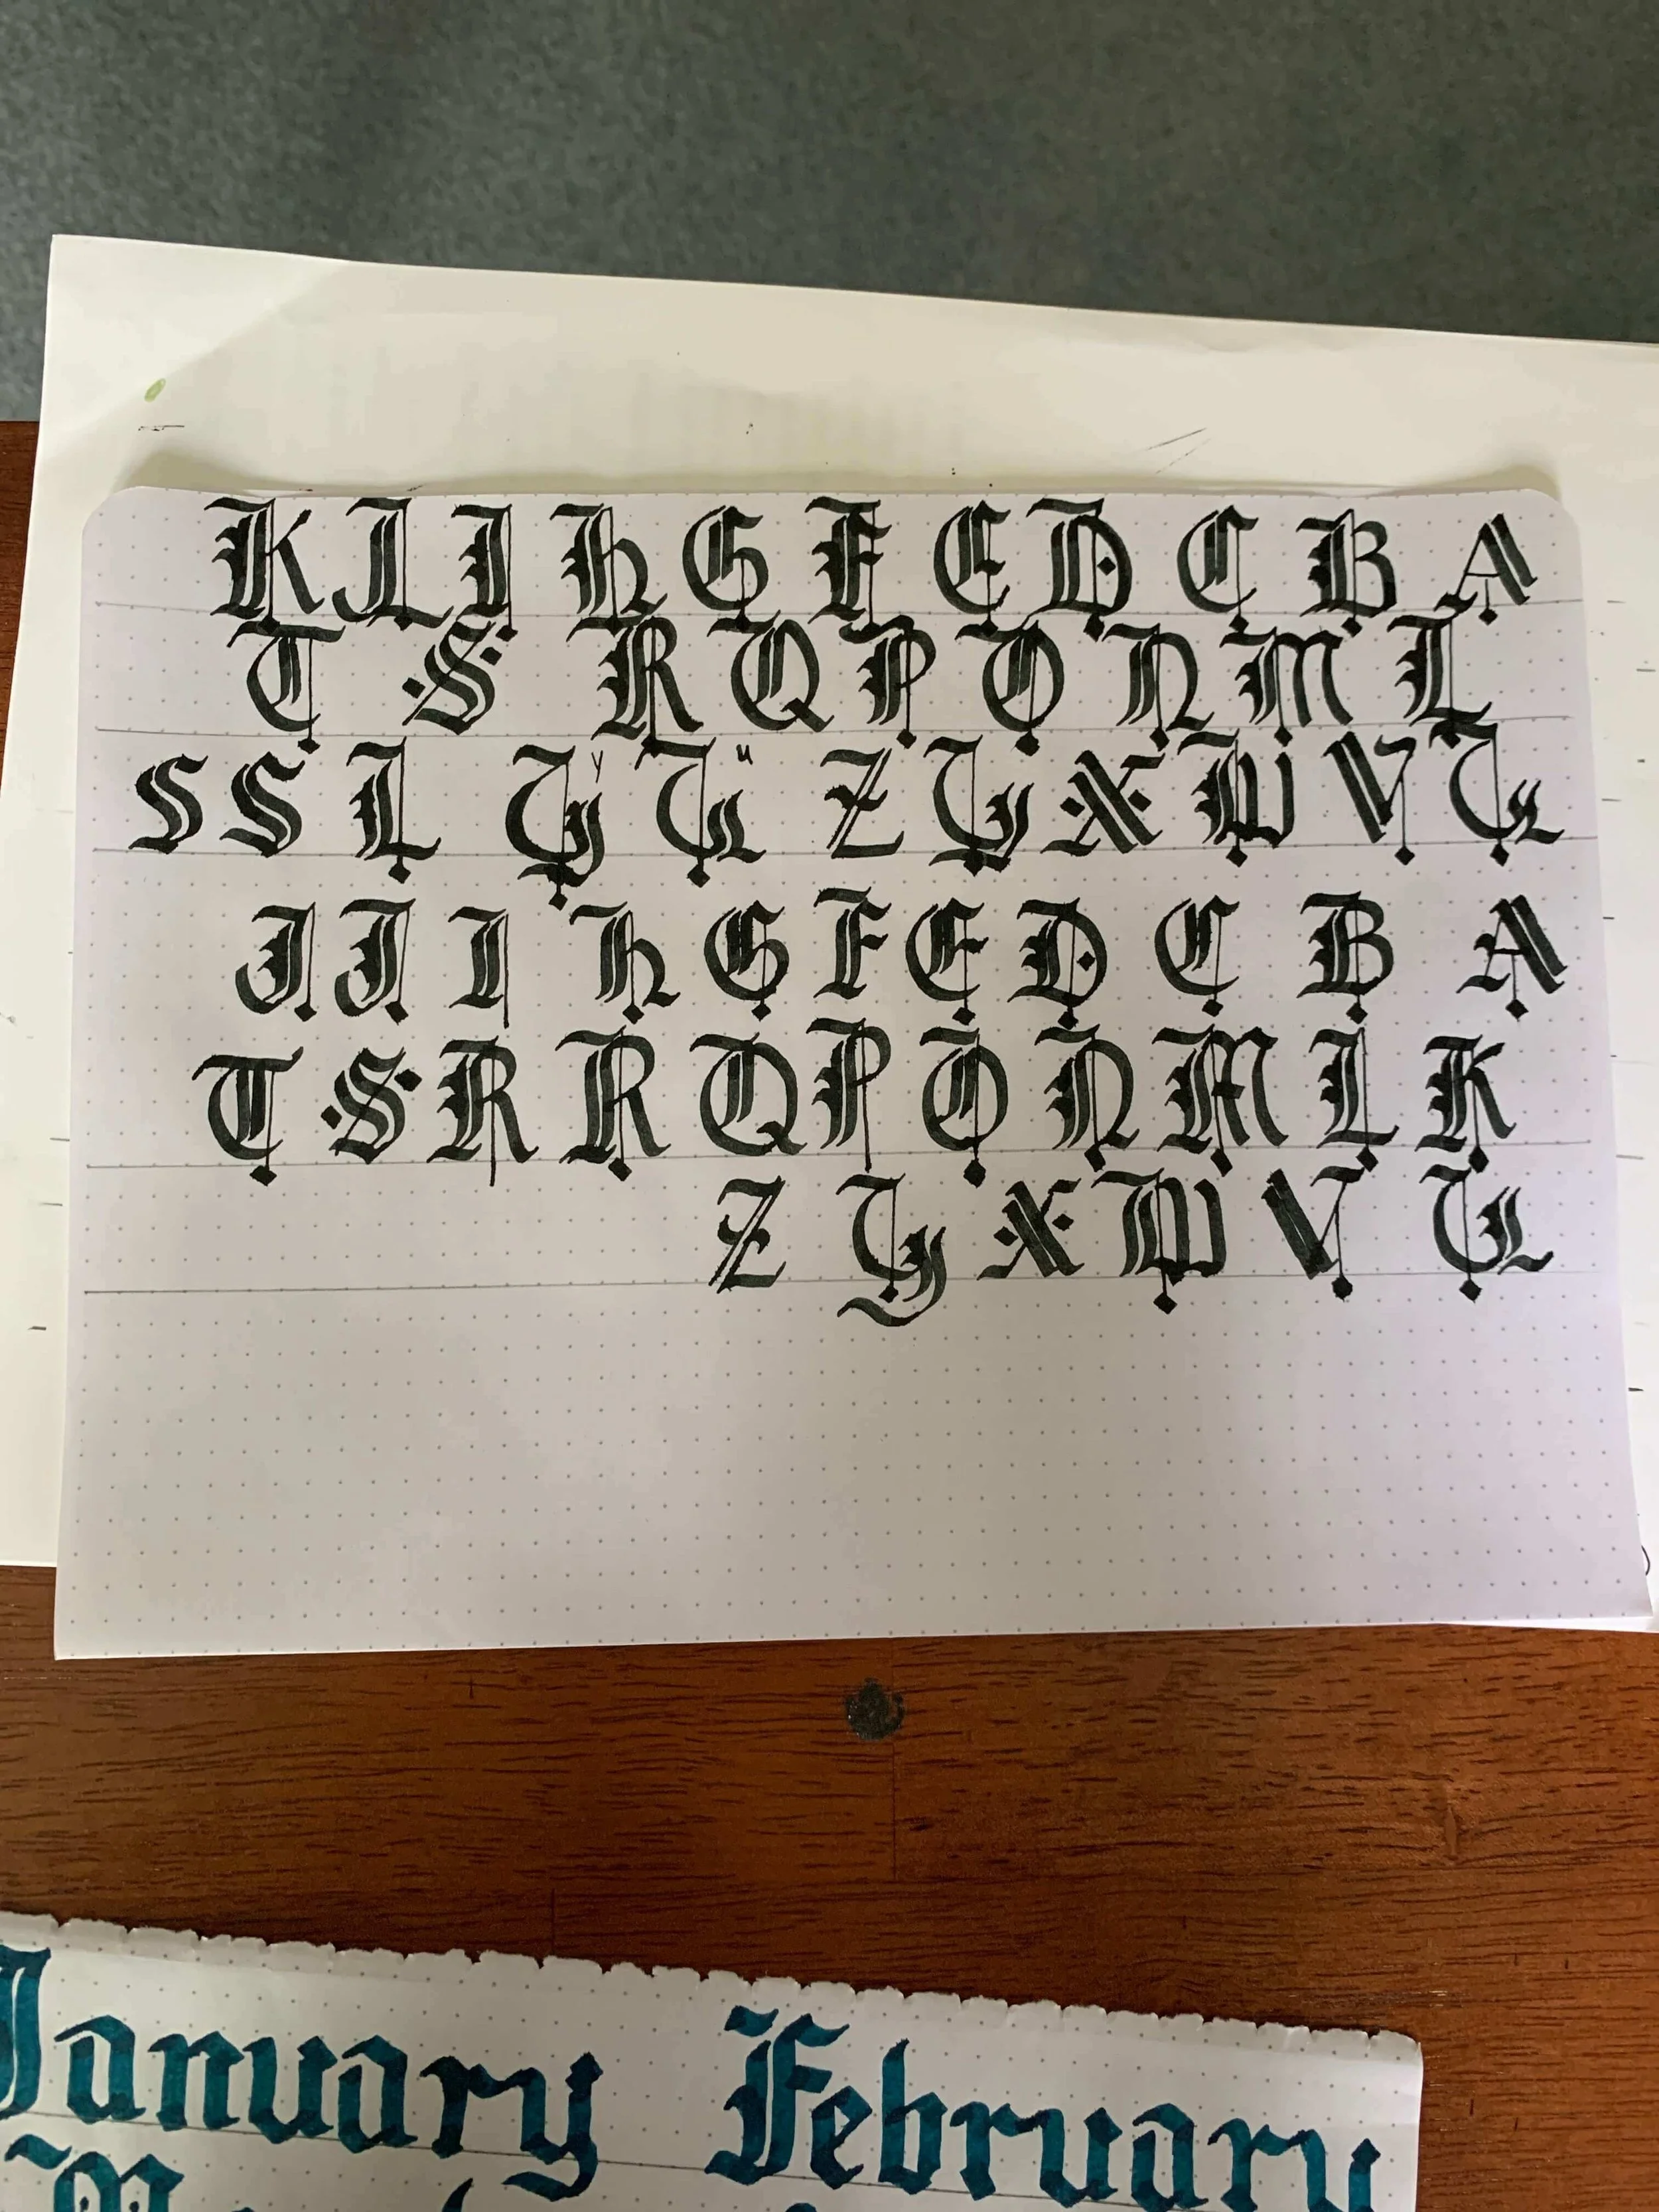 K J I H G F E D C B A
T S R Q P O N M L
S S L Y U Z Y X W V U
J J I H G F E D C B A
T S R R Q P O N M L K
Z Y X W V U
January February